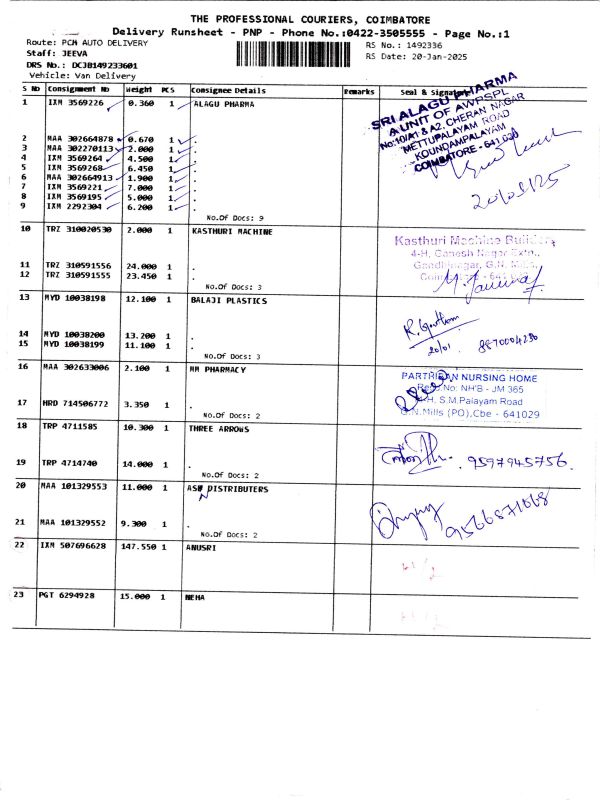 THE PROFESSIONAL COURIERS, COIMBATORE
Delivery Runsheet - PNP - Phone No.:0422-3505555 - Page No.:1
Route: PCM AUTO DELIVERY
Staff: JEEVA
DRS No.: DCJB149233601
Vehicle: Van Delivery
RS No.: 1492336
RS Date: 20-Jan-2025
S No Consignment No Weight PCS Consignee Details Remarks Seal & Signature
1 IXM 3569226 0.360 1 ALAGU PHARMA
SRI ALAGU PHARMA
A UNIT OF AWPSPL
No:10/A1 & A2, CHERAN NAGAR
METTUPALAYAM ROAD
KOUNDAMPALAYAM
COIMBATORE - 641 030
2 MAA 302664878 0.670 1 .
3 MAA 302270113 2.000 1 .
4 IXM 3569264 4.500 1 .
5 IXM 3569268 6.450 1 .
6 MAA 302664913 1.900 1 .
7 IXM 3569221 7.000 1 .
8 IXM 3569195 5.000 1 .
9 IXM 2292304 6.200 1 .
No.Of Docs: 9
10 TRZ 310020530 2.000 1 KASTHURI MACHINE
Kasthuri Machine Builders
4-H, Ganesh Nagar Extn.,
Gandhinagar, G.N. Mills,
11 TRZ 310591556 24.000 1 .
12 TRZ 310591555 23.450 1 .
No.Of Docs: 3
13 MYD 10038198 12.100 1 BALAJI PLASTICS
14 MYD 10038200 13.200 1 .
15 MYD 10038199 11.100 1 .
20/01 8870004280
No.Of Docs: 3
16 MAA 302633006 2.100 1 MM PHARMACY
PARTHIBAN NURSING HOME
Regd.No: NH'B - JM 365
S.M.Palayam Road
G.N.Mills (PO),Cbe - 641029
17 HRD 714506772 3.350 1 .
No.Of Docs: 2
18 TRP 4711585 10.300 1 THREE ARROWS
19 TRP 4714740 14.000 1 .
9597945756.
No.Of Docs: 2
20 MAA 101329553 11.000 1 ASN DISTRIBUTERS
21 MAA 101329552 9.300 1 .
9566871068
No.Of Docs: 2
22 IXM 507696628 147.550 1 ANUSRI
23 PGT 6294928 15.000 1 NEHA